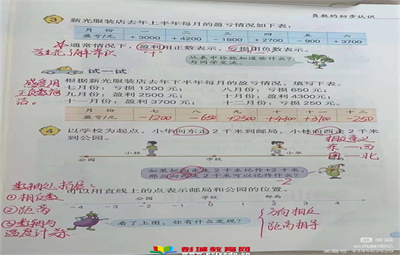 负数的初步认识
3 新光服装店去年上半年每月的盈亏情况如下表:
月份 一 二 三 四 五 六
盈亏/元 +3000 +4200 -1800 +2700 -900 +3700
通常情况下,盈利用正数表示,亏损用负数表示。
从表中你能知道些什么?
与同学交流。
试一试
根据新光服装店去年下半年每月的盈亏情况,填写下表。
七月份:亏损1200元; 八月份:亏损650元;
九月份:盈利2500元; 十月份:盈利4300元;
十一月份:盈利3700元; 十二月份:亏损250元。
月份 七 八 九 十 十一 十二
盈亏/元 -1200 -650 +2500 +4300 +3700 -250
4 以学校为起点,小华向东走2千米到邮局,小林向西走2千米
到公园。
相反意义
东—西
南—北
小林 小华
公园 学校 邮局
如果把向东走2千米记作+2千米,
用直线上的点表示邮局和公园的位置。
①相反数
②距离
公园 学校 邮局
-4 -3 -2 -1 0 1 2 3 4
③数轴与
温度计等
看了上图,你有什么发现?
方向相反
距离相等
彭城教育网